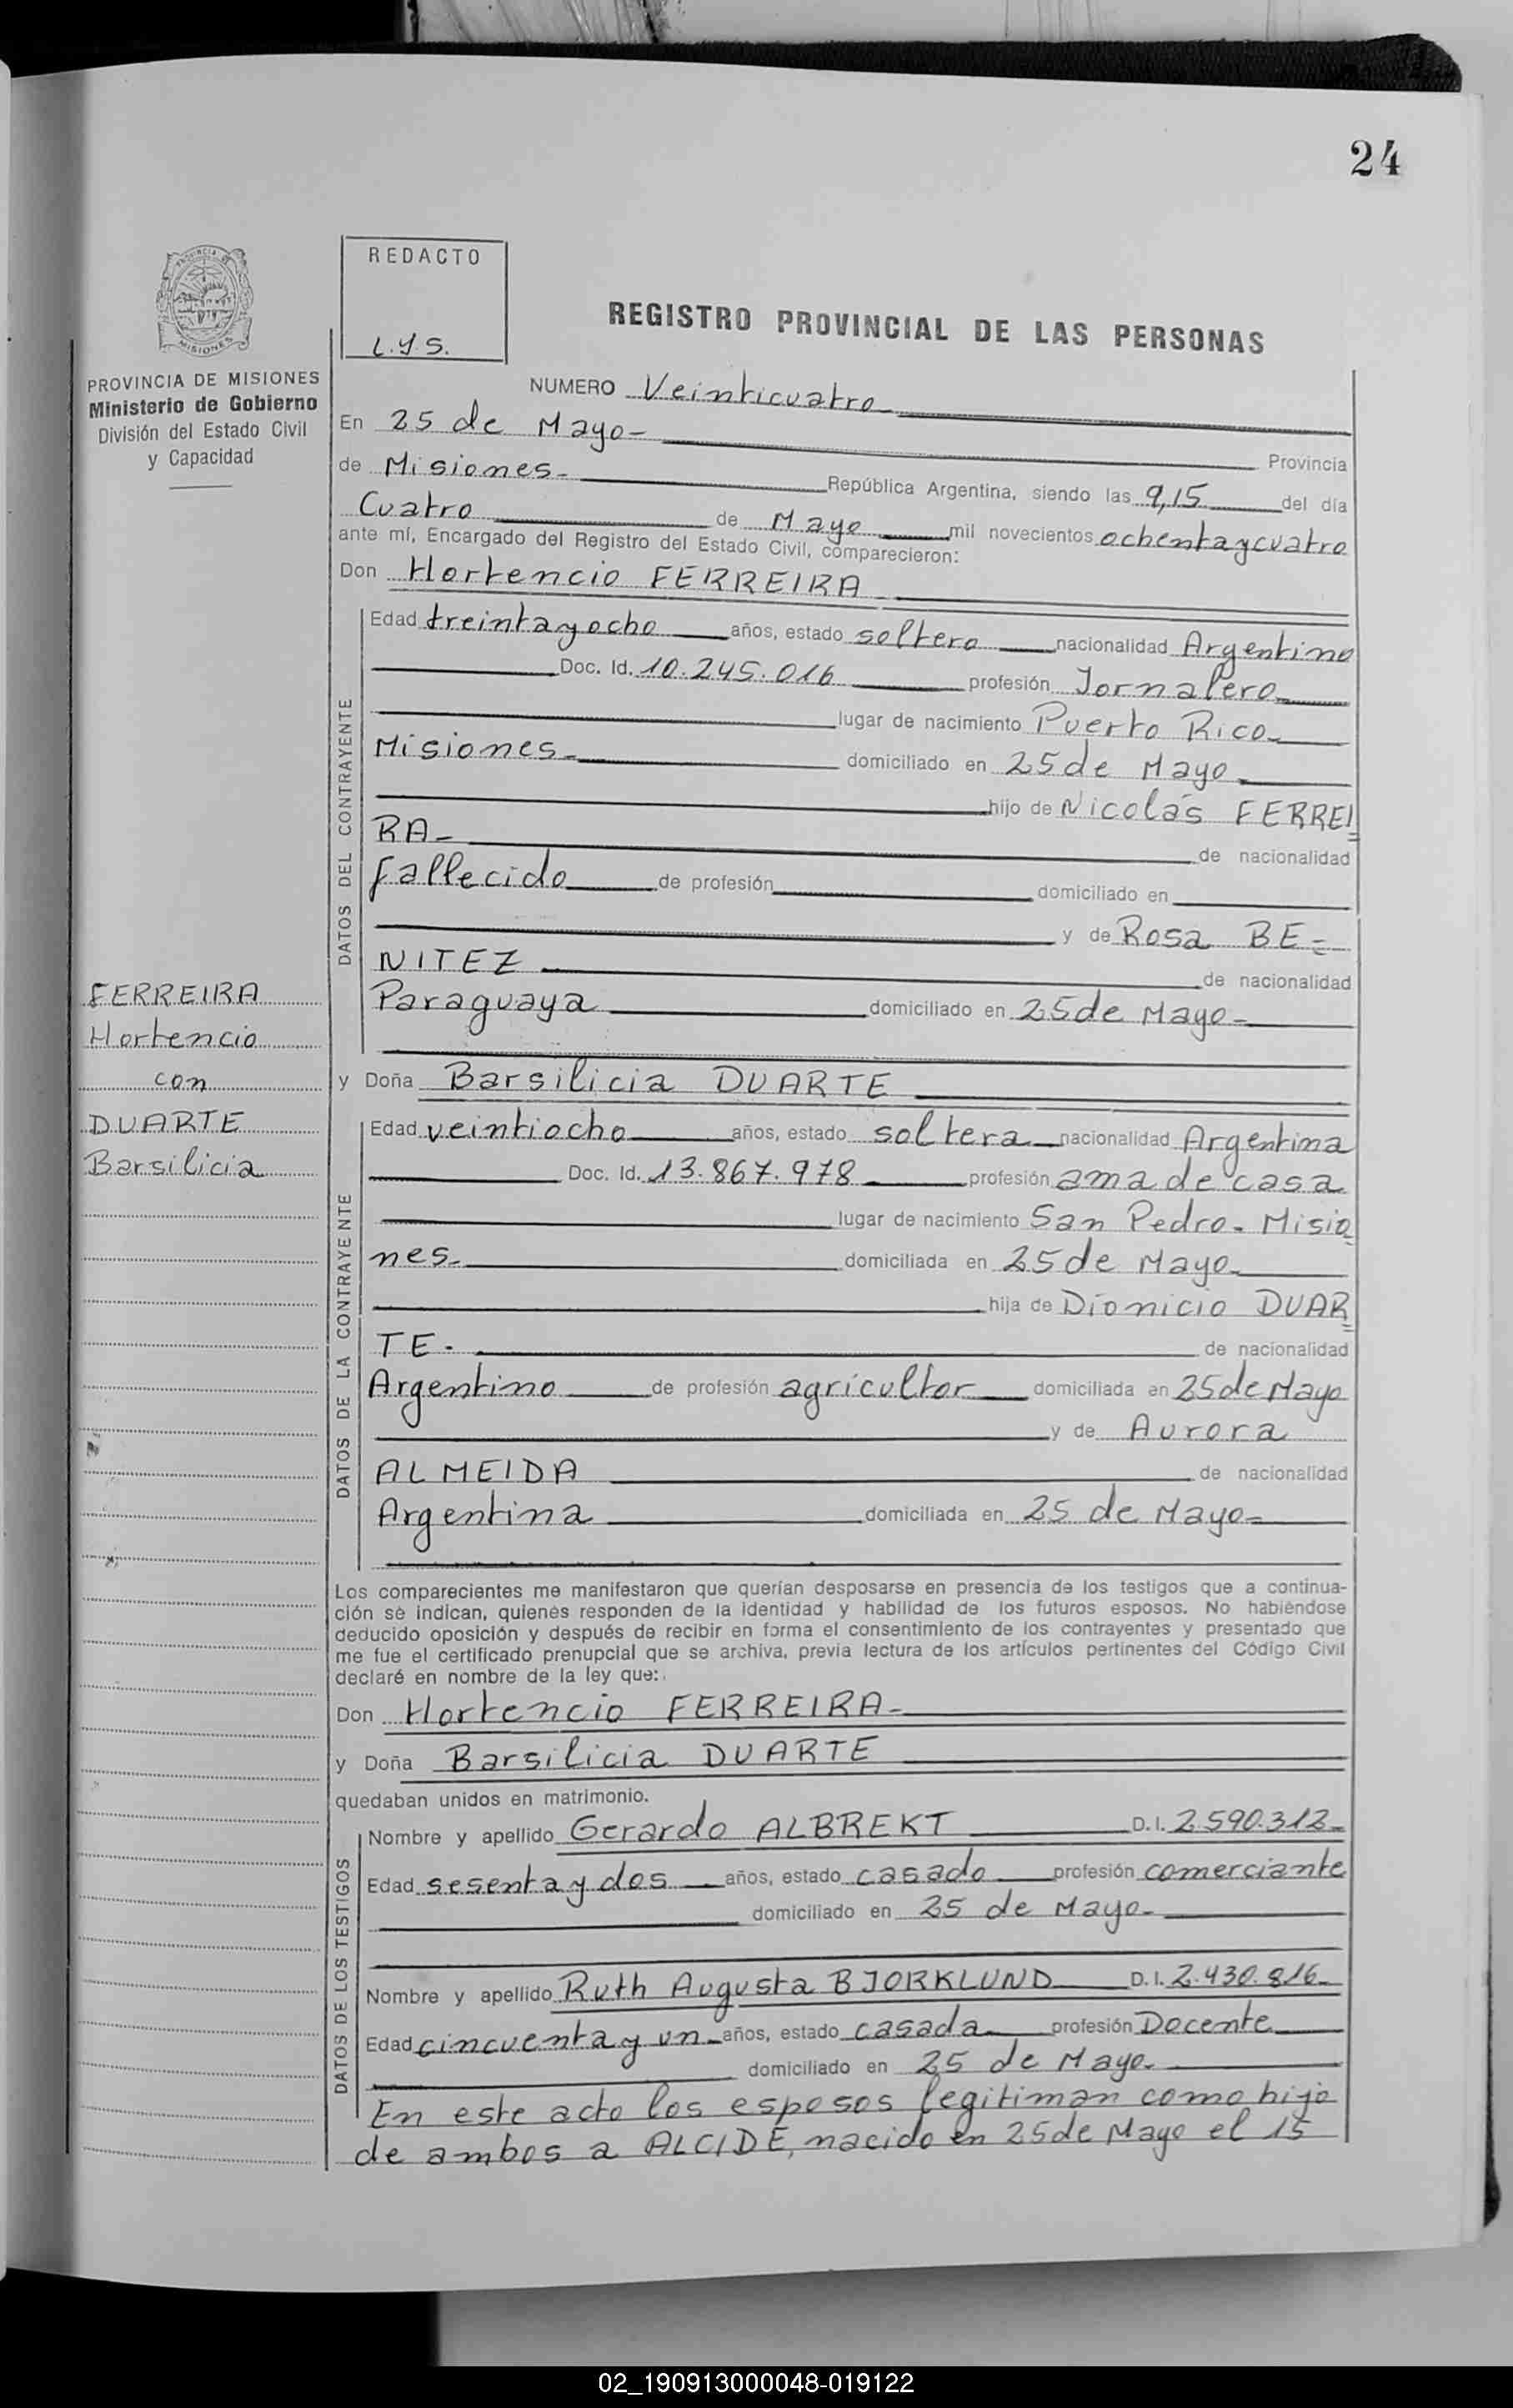 24
REDACTO
L.y.S.
REGISTRO PROVINCIAL DE LAS PERSONAS
PROVINCIA DE MISIONES
Ministerio de Gobierno
División del Estado Civil
y Capacidad
NUMERO Veinticuatro
En 25 de Mayo-
Provincia
de Misiones- República Argentina, siendo las 9,15 del día
Cuatro de Mayo mil novecientos ochentaycuatro
ante mí, Encargado del Registro del Estado Civil, comparecieron:
Don Hortencio FERREIRA
DATOS DEL CONTRAYENTE
Edad treintayocho años, estado soltero nacionalidad Argentino
Doc. Id. 10.245.016 profesión Jornalero
lugar de nacimiento Puerto Rico-
Misiones- domiciliado en 25 de Mayo-
hijo de Nicolás FERREI
RA- de nacionalidad
fallecido de profesión domiciliado en
y de Rosa BE=
NITEZ de nacionalidad
Paraguaya domiciliado en 25de Mayo-
FERREIRA
Hortencio
con
DUARTE
Barsilicia
y Doña Barsilicia DUARTE
DATOS DE LA CONTRAYENTE
Edad veintiocho años, estado soltera nacionalidad Argentina
Doc. Id. 13.867.978 profesión ama de casa
lugar de nacimiento San Pedro- Misio
nes- domiciliada en 25de Mayo-
hija de Dionicio DUAR
TE- de nacionalidad
Argentino de profesión agricultor domiciliada en 25de Mayo
y de Aurora
ALMEIDA de nacionalidad
Argentina domiciliada en 25 de Mayo-
Los comparecientes me manifestaron que querían desposarse en presencia de los testigos que a continua-
ción se indican, quienes responden de la identidad y habilidad de los futuros esposos. No habiéndose
deducido oposición y después de recibir en forma el consentimiento de los contrayentes y presentado que
me fue el certificado prenupcial que se archiva, previa lectura de los artículos pertinentes del Código Civil
declaré en nombre de la ley que:
Don Hortencio FERREIRA-
y Doña Barsilicia DUARTE
quedaban unidos en matrimonio.
DATOS DE LOS TESTIGOS
Nombre y apellido Gerardo ALBREKT D.I. 2.590.312-
Edad sesenta y dos años, estado casado profesión comerciante
domiciliado en 25 de Mayo-
Nombre y apellido Ruth Augusta BJORKLUND D.I. 2.430.816-
Edad cincuenta y un- años, estado casada profesión Docente
domiciliado en 25 de Mayo-
En este acto los esposos legitiman como hijo
de ambos a ALCIDE, nacido en 25de Mayo el 15
02_190913000048-019122